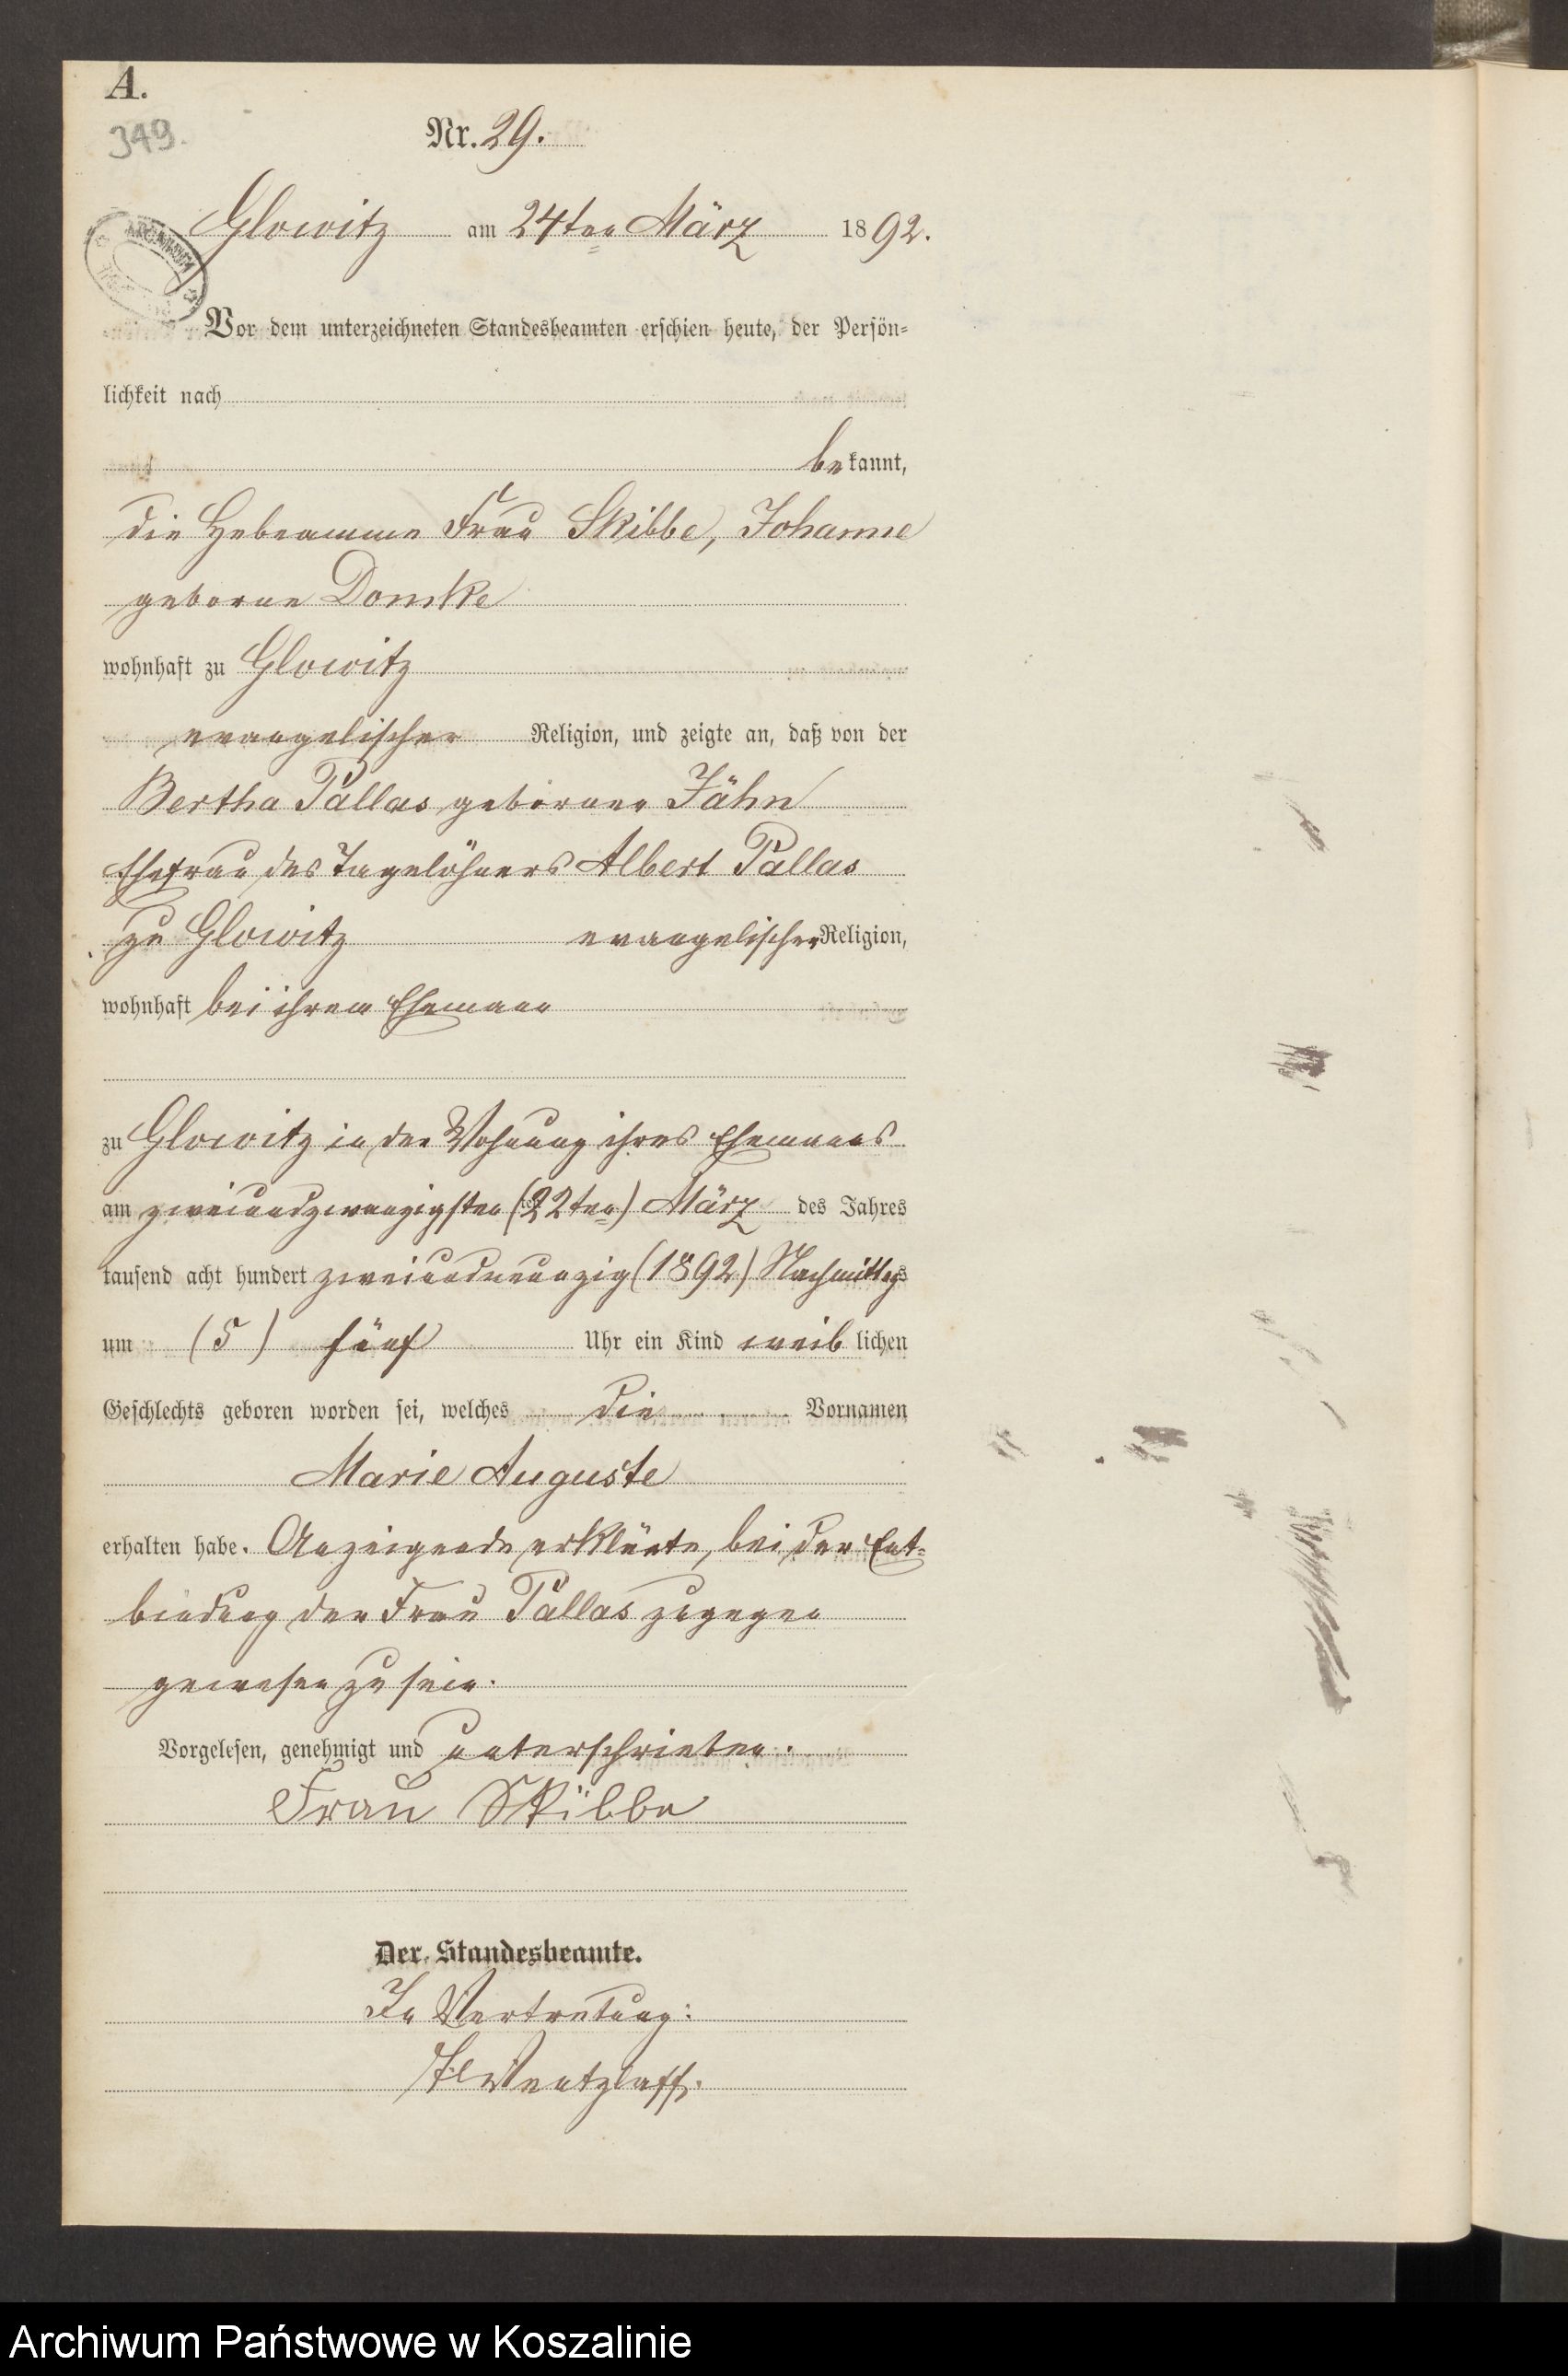 A.
349.
Nr. 29.
Glowitz am 24ten März 1892.
ARCHIWUM
Vor dem unterzeichneten Standesbeamten erschien heute, der Persön-
lichkeit nach
bekannt,
die Hebeamme Frau Skibbe, Johanne
geborne Domke
wohnhaft zu Glowitz
evangelischer Religion, und zeigte an, daß von der
Bertha Pallas geborner Jähn
Ehefrau des Tagelöhners Albert Pallas
zu Glowitz evangelischer Religion,
wohnhaft bei ihrem Ehemann
zu Glowitz in der Wohnung ihres Ehemanns
am zweiundzwanzigsten (22ten) März des Jahres
tausend acht hundert zweiundneunzig (1892) Nachmittags
um (5) fünf Uhr ein Kind weiblichen
Geschlechts geboren worden sei, welches die Vornamen
Marie Auguste
erhalten habe. Anzeigende erklärte, bei der Ent-
bindung der Frau Pallas zugegen
gewesen zu sein.
Vorgelesen, genehmigt und unterschrieben.
Frau Skibbe
Der Standesbeamte.
In Vertretung:
Wentzlaff.
Archiwum Państwowe w Koszalinie